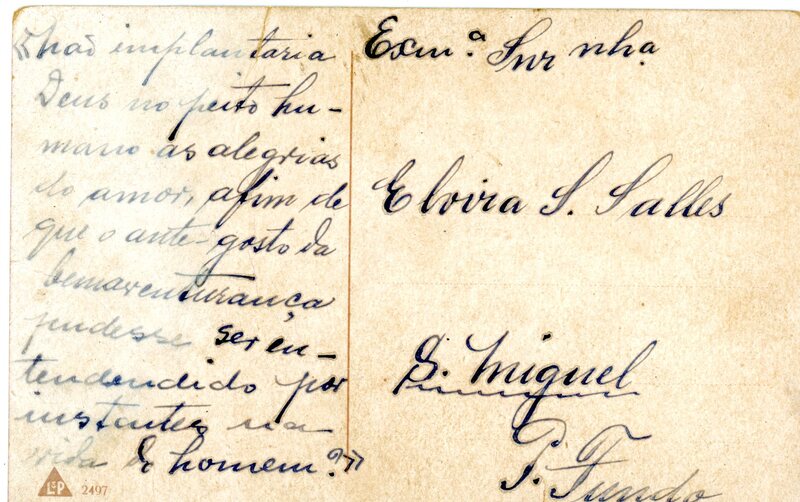 «Não implantaria
Deus no peito hu-
mano as alegrias
do amor, afim de
que o ante-gosto da
bemaventurança
pudesse ser en-
tendendido por
instantes na
vida do homem?»
Exmª. Snr nhª
Elvira S. Salles
S. Miguel
P. Fundo
L&P 2497